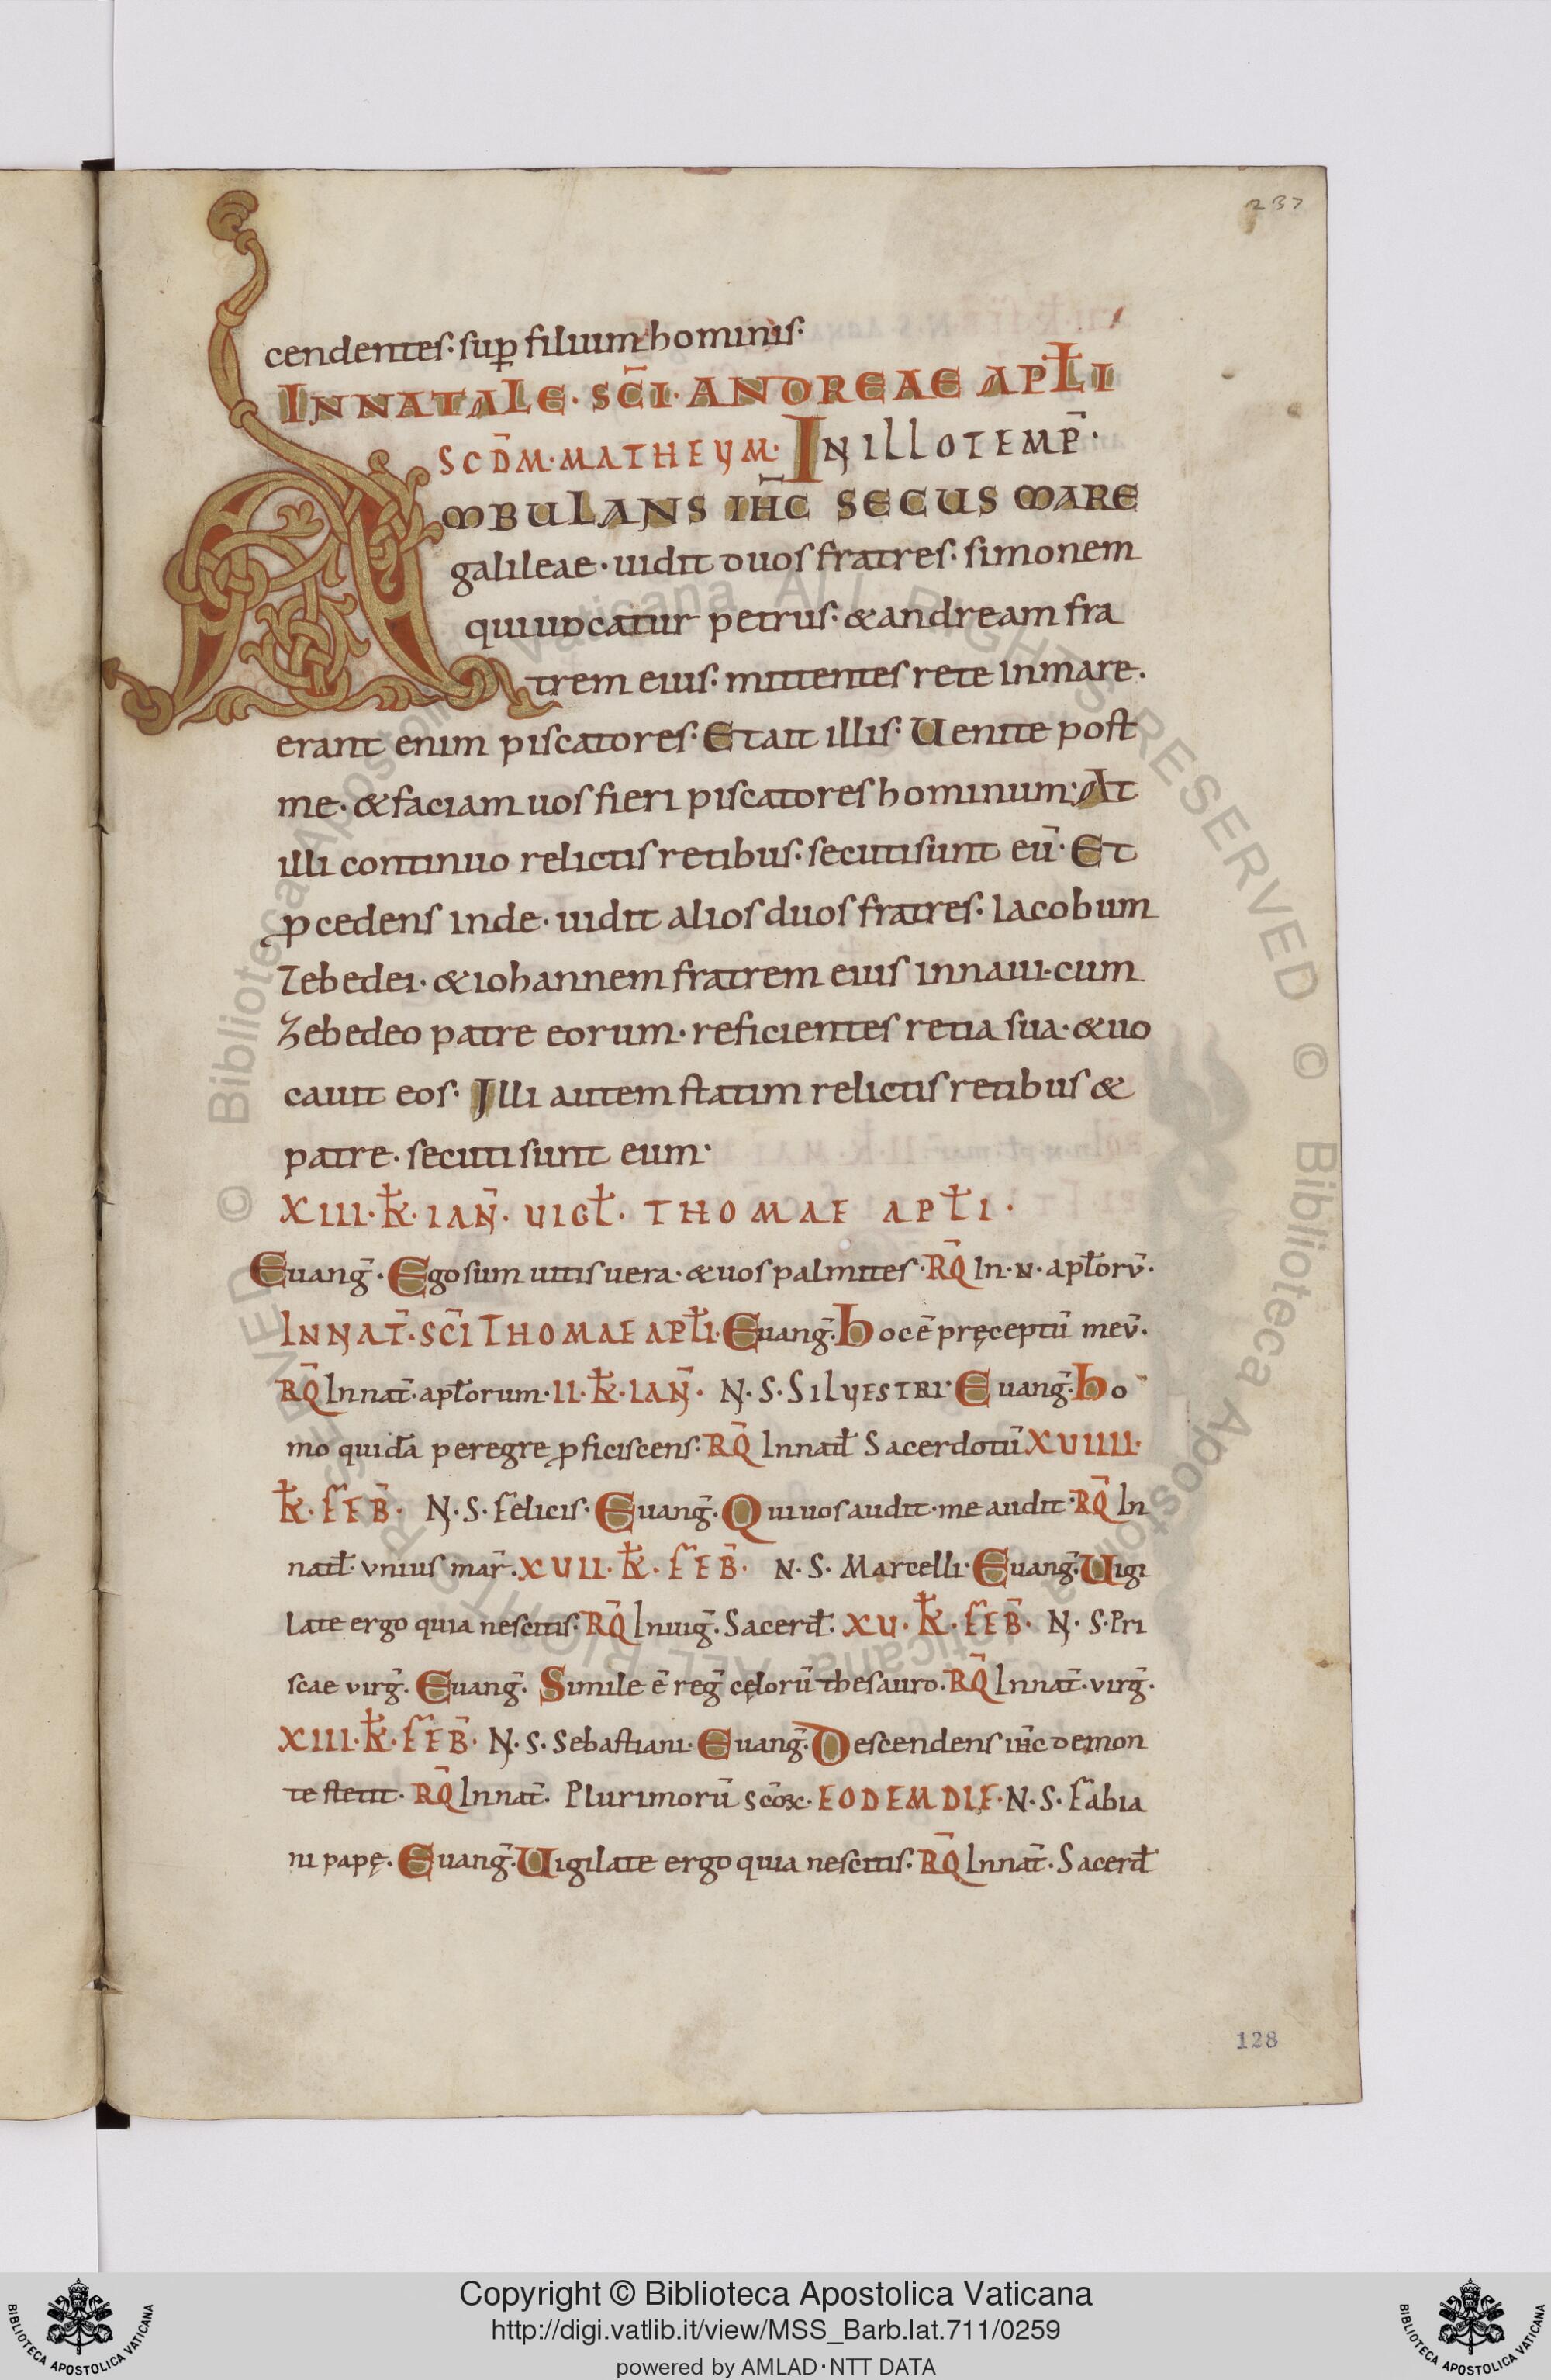 237
cendentes· sup̱ filium hominis·
IN NATALE· SC̄I· ANDREAE APŁI
SCD̄M· MATHEUM· IN ILLO TEMP̄·
AMBULANS IH̄C SECUS MARE
galileae· uidit duos fratres· simonem
qui uocatur petrus· & andream fra
trem eius· mittentes rete in mare·
erant enim piscatores· Et ait illis· Uenite post
me· & faciam uos fieri piscatores hominum· At
illi continuo relictis retibus· secuti sunt eū· Et
ꝓcedens inde· uidit alios duos fratres· Iacobum
Zebedei· & iohannem fratrem eius in naui· cum
Zebedeo patre eorum· reficientes retia sua· & uo
cauit eos· Illi autem statim relictis retibus &
patre· secuti sunt eum·
XIII· K̵· IAN̄· UIGł· THOMAE APŁI·
Euanḡ· Ego sum uitis uera· & uos palmites· RQ̄ In· n· apƚorū·
IN NAT̄· SC̄I THOMAE APŁI· Euanḡ· Hoc ē pręceptū meū·
RQ̄ In nat̄· apƚorum· II· K̵· IAN̄· N· S· SILUESTRI· Euanḡ· Ho
mo quidā peregre ꝓficiscens· RQ̄ In natƚ Sacerdotū XVIIII·
K̵· FEB̄· N· S· Felicis· Euanḡ· Qui uos audit· me audit· RQ̄ In
natƚ· unius mar̄· XVII· K̵· FEB̄· N· S· Marcelli· Euanḡ· Uigi
late ergo quia nescitis· RQ̄ In uiḡ· Sacerđ· XV· K̵· FEB̄· N· S· Pri
scae virḡ· Euanḡ· Simile ē reḡ cęlorū thesauro· RQ̄ In nat̄· virḡ·
XIII· K̵· FEB̄· N· S· Sebastiani· Euanḡ· Descendens ih̄c de mon
te stetit· RQ̄ In nat̄· Plurimorū sc̄oꝝ· EODEM DIE· N· S· Fabia
ni papę· Euanḡ· Uigilate ergo quia nescitis· RQ̄ In nat̄· Sacerđ
128
© Biblioteca Apostolica Vaticana ALL RIGHTS RESERVED © Biblioteca Apostolica Vaticana ALL RIGHTS RESERVED
Copyright © Biblioteca Apostolica Vaticana
http://digi.vatlib.it/view/MSS_Barb.lat.711/0259
powered by AMLAD·NTT DATA
BIBLIOTECA APOSTOLICA VATICANA
BIBLIOTECA APOSTOLICA VATICANA